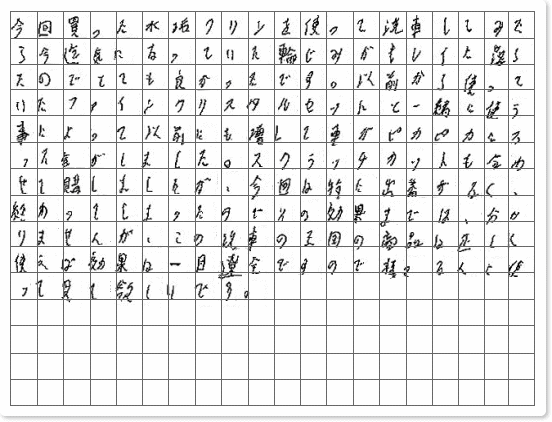 今回買った水垢クリンを使って洗車してみた
ら今迄気になっていた輪じみがキレイに落ち
たのでとても良かったです。以前から使って
いたファインクリスタルセットと一緒に使う
事によって以前にも増して車がピカピカにな
った気がしました。スクラッチカットも含め
せて購しましたが、今回は特に出番がなく、
終わってしまったのでその効果までは、分か
りませんが、この洗車の王国の商品は正しく
使えば効果は一目遼全ですので様々な人に使
って見て欲しいです。